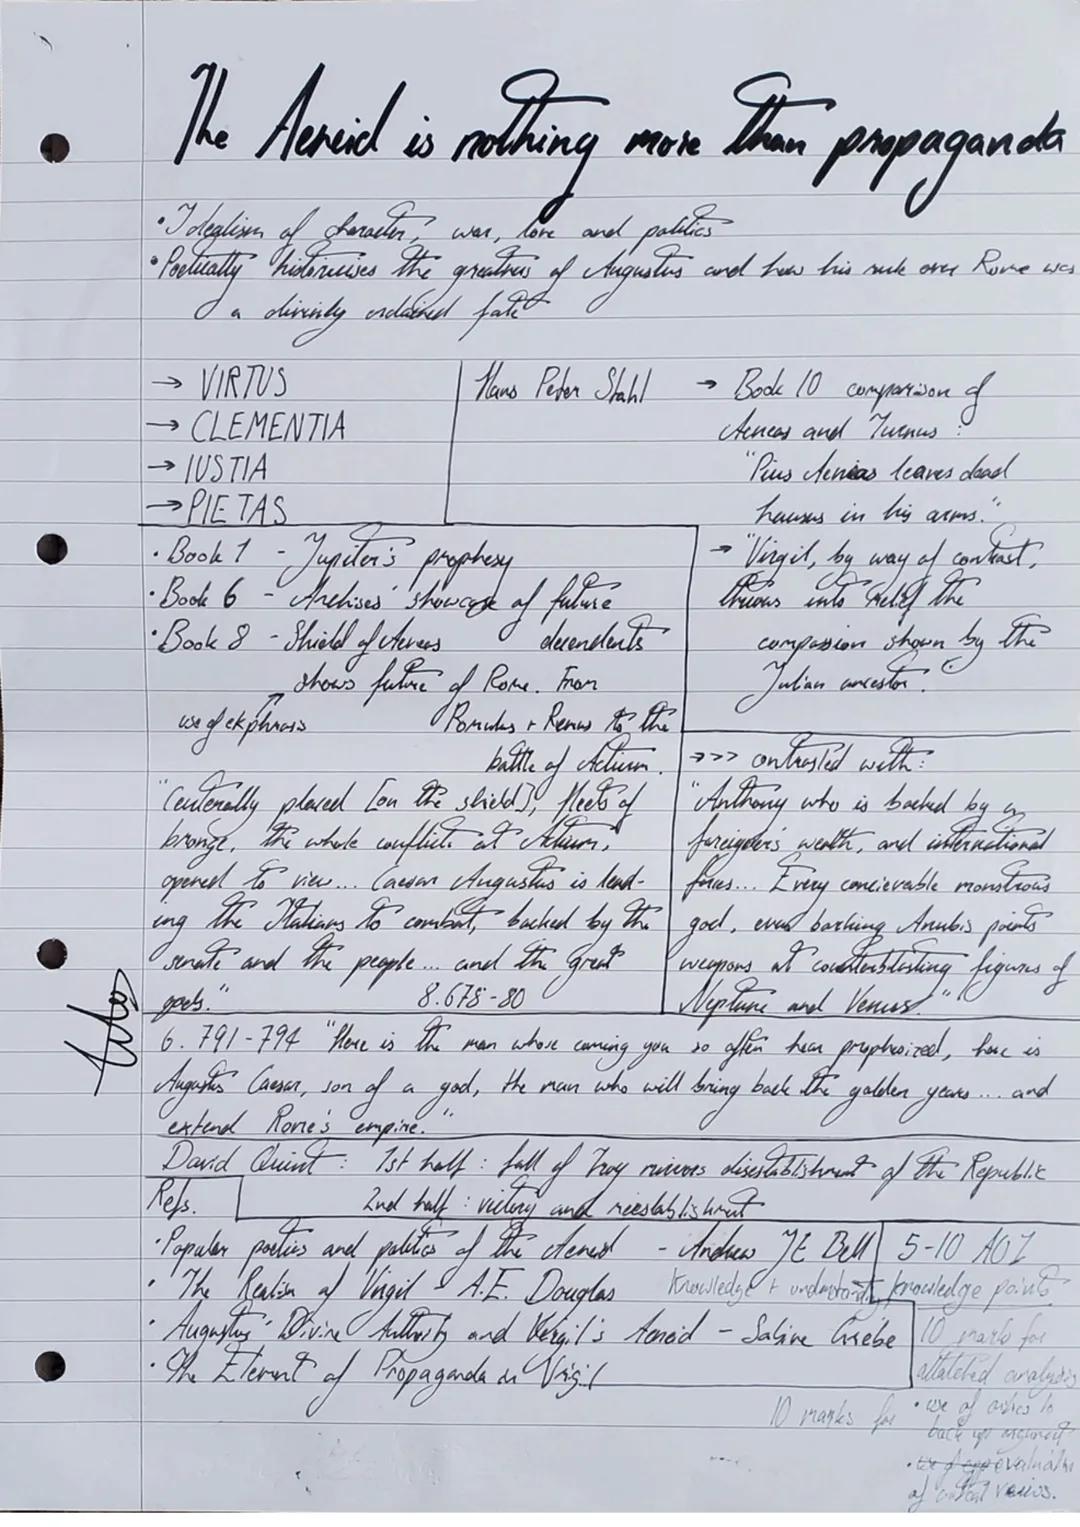 The Aeneid is nothing more than propaganda
• Idealism of character, war, love and politics
• Poetically historicises the greatness of Augustus and how his rule over Rome was
a divinely ordained fate
→ VIRTUS
→ CLEMENTIA
→ IUSTIA
→ PIETAS
Hans Peter Stahl
→ Book 10 comparison of
Aeneas and Turnus :
"Pius Aeneas leaves dead
in his arms."
→ "Virgil, by way of contrast,
throws into relief the
compassion shown by the
Julian ancestor."
• Book 1 - Jupiter's prophesy
• Book 6 - Anchises' showcase of future
decendents
• Book 8 - Shield of Aeneas
shows future of Rome. From
Romulus + Remus to the
battle of Actium.
use of ekphrasis
"Centerally placed [on the shield], fleets of
bronze, the whole conflict at Actium,
opened to view... Caesar Augustus is lead-
ing the Italians to combat, backed by the
senate and the people... and the great
gods." 8.678-80
→>> contrasted with:
"Anthony who is backed by a
foreigner's wealth, and international
forces... Every concievable monstrous
god, even barking Anubis points
weapons at counterblasting figures of
Neptune and Venus."
6. 791-794 "Here is the man whose coming you so often hear prophesized, here is
Augustus Caesar, son of a god, the man who will bring back the golden years... and
extend Rome's empire."
David Quint : 1st half : fall of Troy mirrors disestablishment of the Republic
2nd half : victory and reestablishment
Refs.
• Popular poetics and politics of the Aeneid - Andrew JE Bell
• The Realism of Virgil - A.E. Douglas
• Augustus' Divine Authority and Vergil's Aeneid - Sabine Grebe
• The Element of Propaganda in Virgil
5-10 AO1
Knowledge + understanding knowledge points
10 marks for
attatched analysis
10 marks for
• use of critics to
back up argument
• evaluation
of critical views.